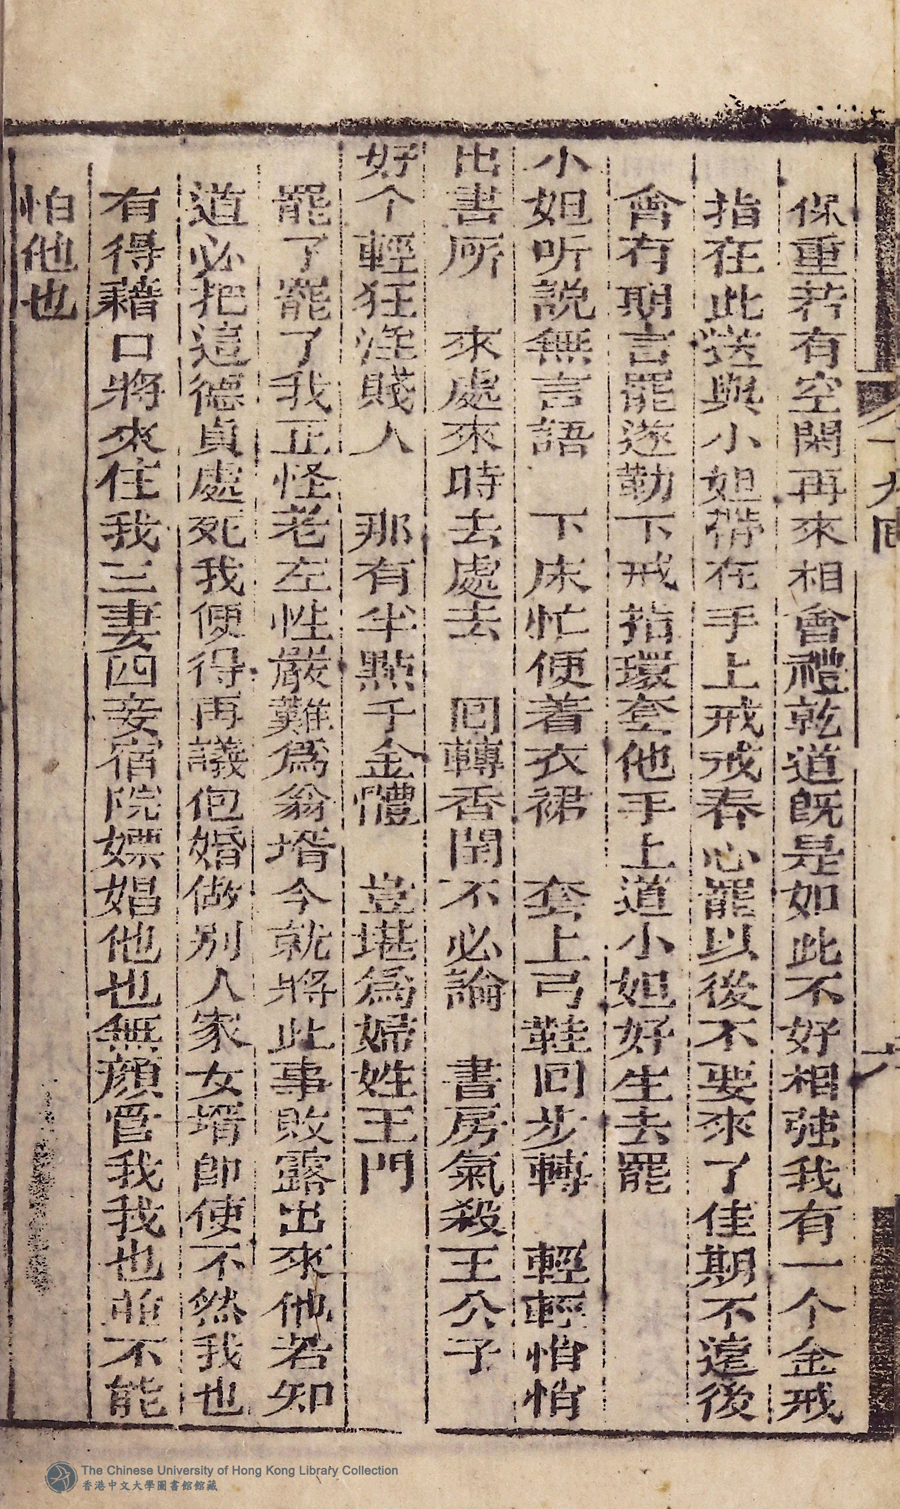 保重若有空閑再來相會禮乾道既是如此不好相強我有一个金戒
指在此送與小姐帶在手上戒戒春心罷以後不要來了佳期不遠後
會有期言罷遂勒下戒指環套他手上道小姐好生去罷
小姐听説無言語 下床忙便着衣裙 套上弓鞋回步轉 輕輕悄悄
出書所 來處來時去處去 回轉香閨不必論 書房氣殺王公子
好个輕狂淫賤人 那有半點千金體 豈堪爲婦姓王門
罷了罷了我正怪老左性嚴難爲翁壻今就將此事敗露出來他若知
道必把這德貞處死我便得再議佢婚做别人家女壻即使不然我也
有得藉口將來住我三妻四妾宿院嫖娼他也無顔管我我也並不能
怕他也
十九回
The Chinese University of Hong Kong Library Collection
香港中文大學圖書館館藏